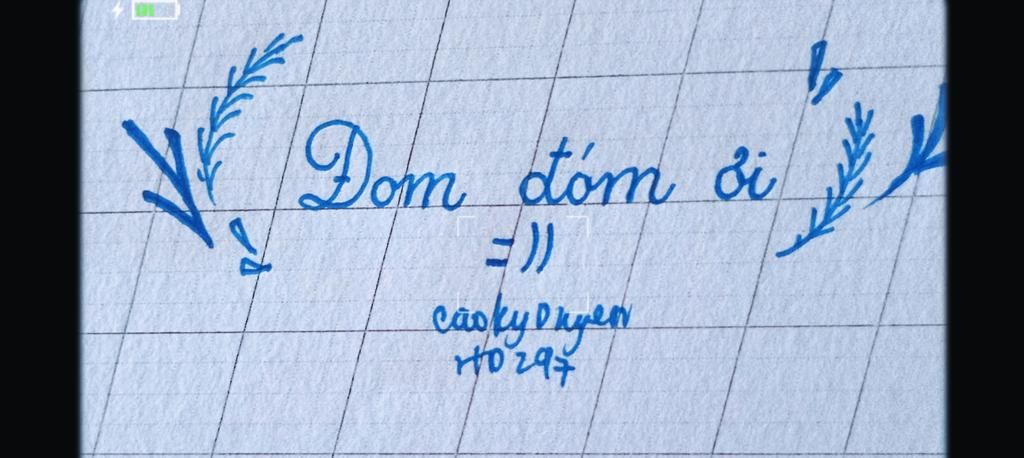 Đom đóm ơi
=))
càokyDuyen
HD297